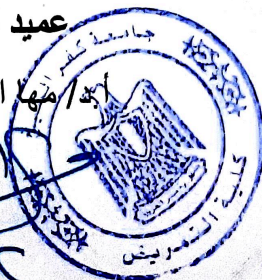 عميد
أ.د/ مها ا
جامعة كفر ال
كلية التمريض